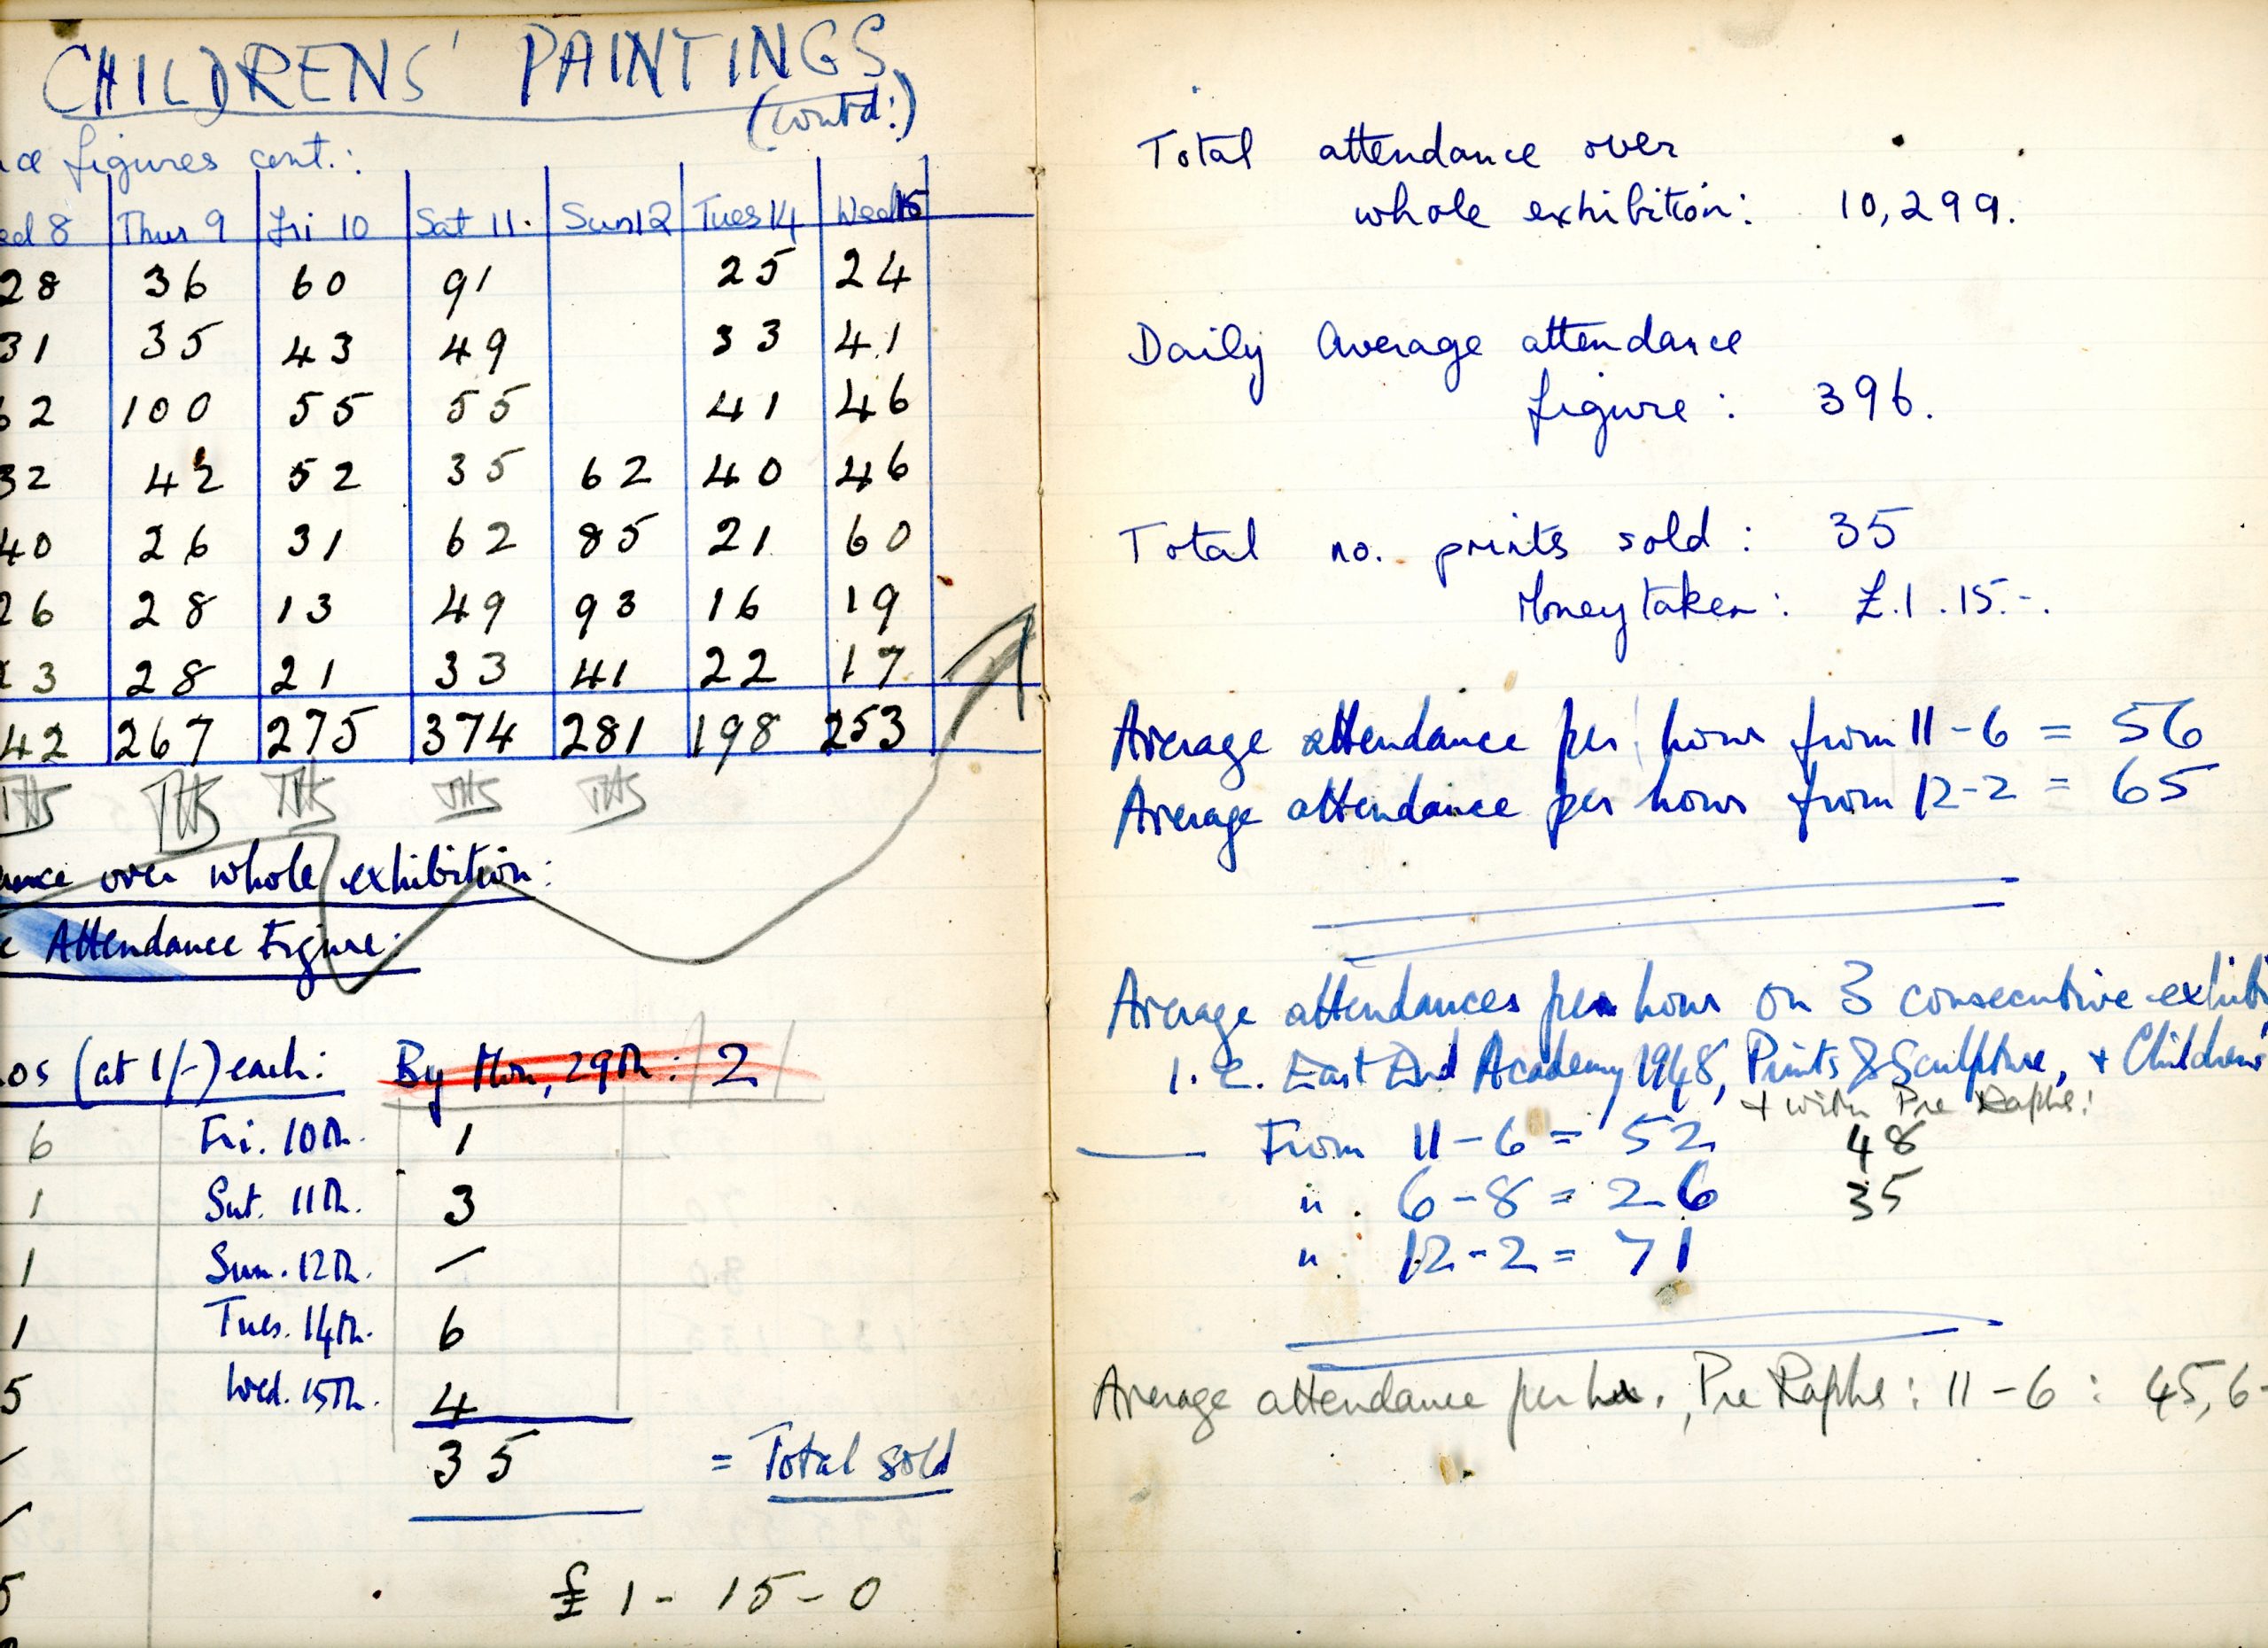 CHILDRENS' PAINTINGS
(contd:)
figures cont.:
ed 8 Thur 9 Fri 10 Sat 11. Sun 12 Tues 14 Wed 15
28 36 60 91 25 24
31 35 43 49 33 41
62 100 55 55 41 46
32 42 52 35 62 40 46
40 26 31 62 85 21 60
26 28 13 49 93 16 19
23 28 21 33 41 22 17
42 267 275 374 281 198 253
ance over whole exhibition:
e Attendance Figure:
os (at 1/-) each: By Mon, 29th: 2
6 Fri. 10th. 1
1 Sat. 11th. 3
1 Sun. 12th. -
1 Tues. 14th. 6
5 Wed. 15th. 4
35 = Total sold
£1-15-0
Total attendance over
whole exhibition: 10,299.
Daily Average attendance
figure: 396.
Total no. prints sold: 35
Money taken: £.1.15.-.
Average attendance per hour from 11-6 = 56
Average attendance per hour from 12-2 = 65
Average attendances per hour on 3 consecutive exhibi
i.e. East End Academy 1948, Prints & Sculpture, + Childrens'
+ with Pre Raphs:
From 11-6 = 52 48
" 6-8 = 26 35
" 12-2 = 71
Average attendance per hr., Pre Raphs: 11-6: 45, 6-